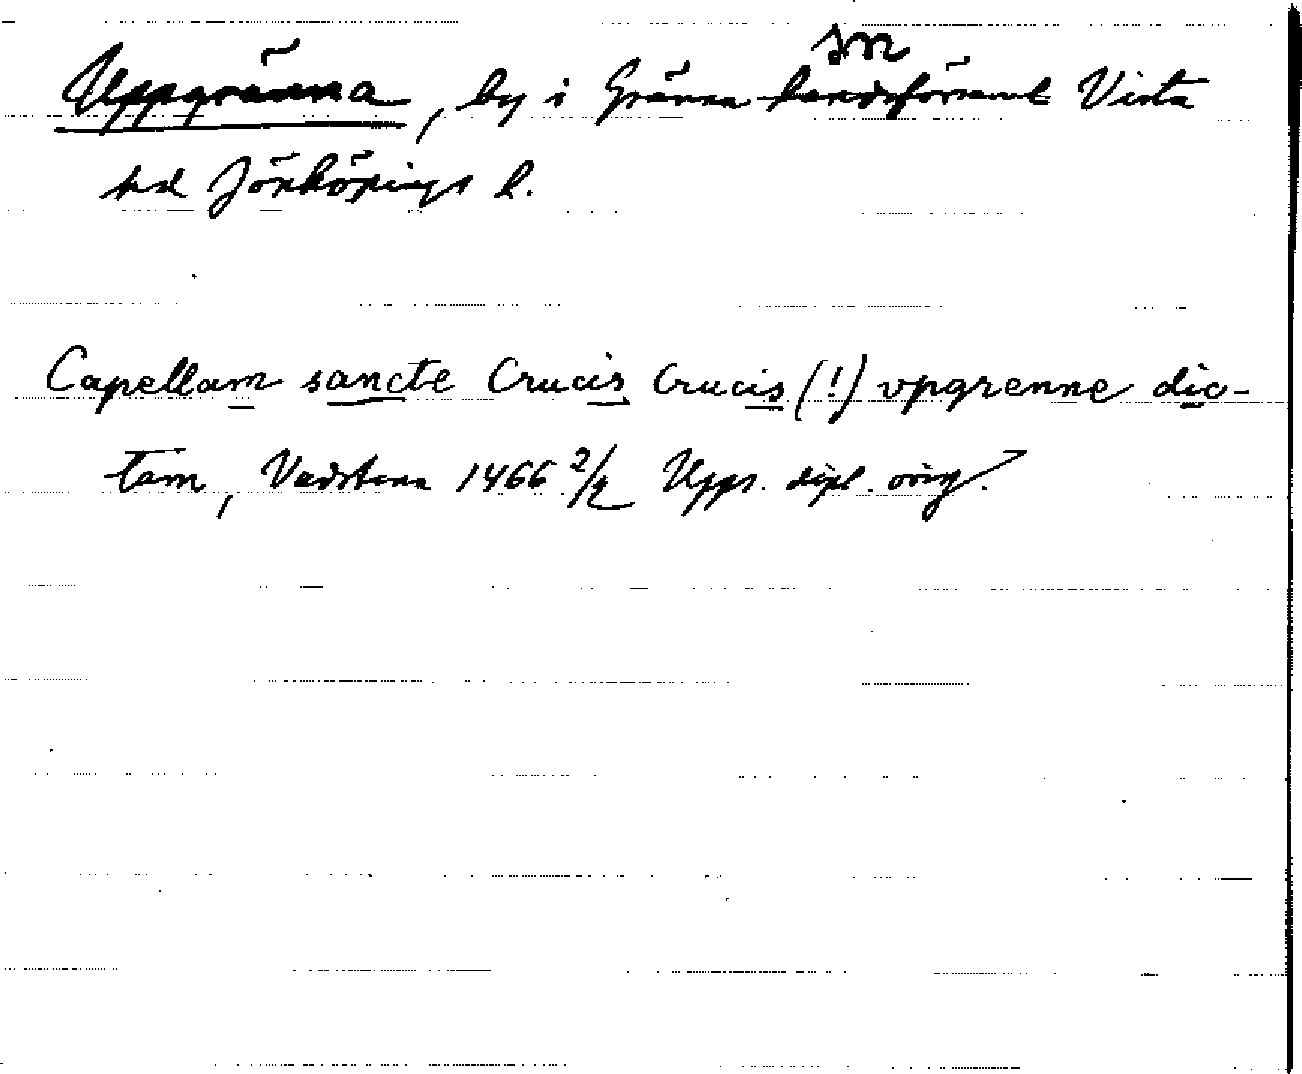 Uppgränna, by i Gränna landsförsaml sn Vista
hd Jönköpings l.
Capellam sancte Crucis Crucis (!) vpgrenne dic-
tam, Vadstena 1466 2/2 Upps. dipl. orig.